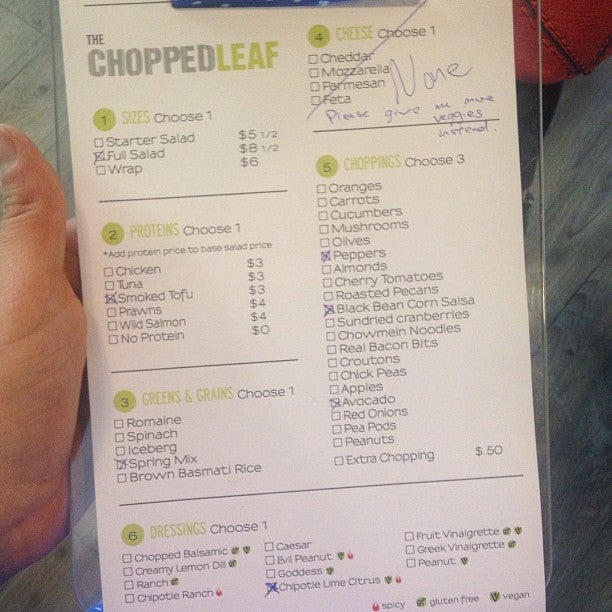 THE
CHOPPEDLEAF
1 SIZES Choose 1
Starter Salad $5 1/2
Full Salad $8 1/2
Wrap $6
2 PROTEINS Choose 1
*Add protein price to base salad price
Chicken $3
Tuna $3
Smoked Tofu $3
Prawns $4
Wild Salmon $4
No Protein $0
3 GREENS & GRAINS Choose 1
Romaine
Spinach
Iceberg
Spring Mix
Brown Basmati Rice
4 CHEESE Choose 1
Cheddar
Mozzarella
Parmesan
Feta
None
Please give me more
veggies
instead.
5 CHOPPINGS Choose 3
Oranges
Carrots
Cucumbers
Mushrooms
Olives
Peppers
Almonds
Cherry Tomatoes
Roasted Pecans
Black Bean Corn Salsa
Sundried cranberries
Chowmein Noodles
Real Bacon Bits
Croutons
Chick Peas
Apples
Avocado
Red Onions
Pea Pods
Peanuts
Extra Chopping $.50
6 DRESSINGS Choose 1
Chopped Balsamic gf
Creamy Lemon Dill gf
Ranch gf
Chipotle Ranch
Caesar
Evil Peanut
Goddess
Chipotle Lime Citrus
Fruit Vinaigrette gf
Greek Vinaigrette gf
Peanut
spicy gf gluten free vegan